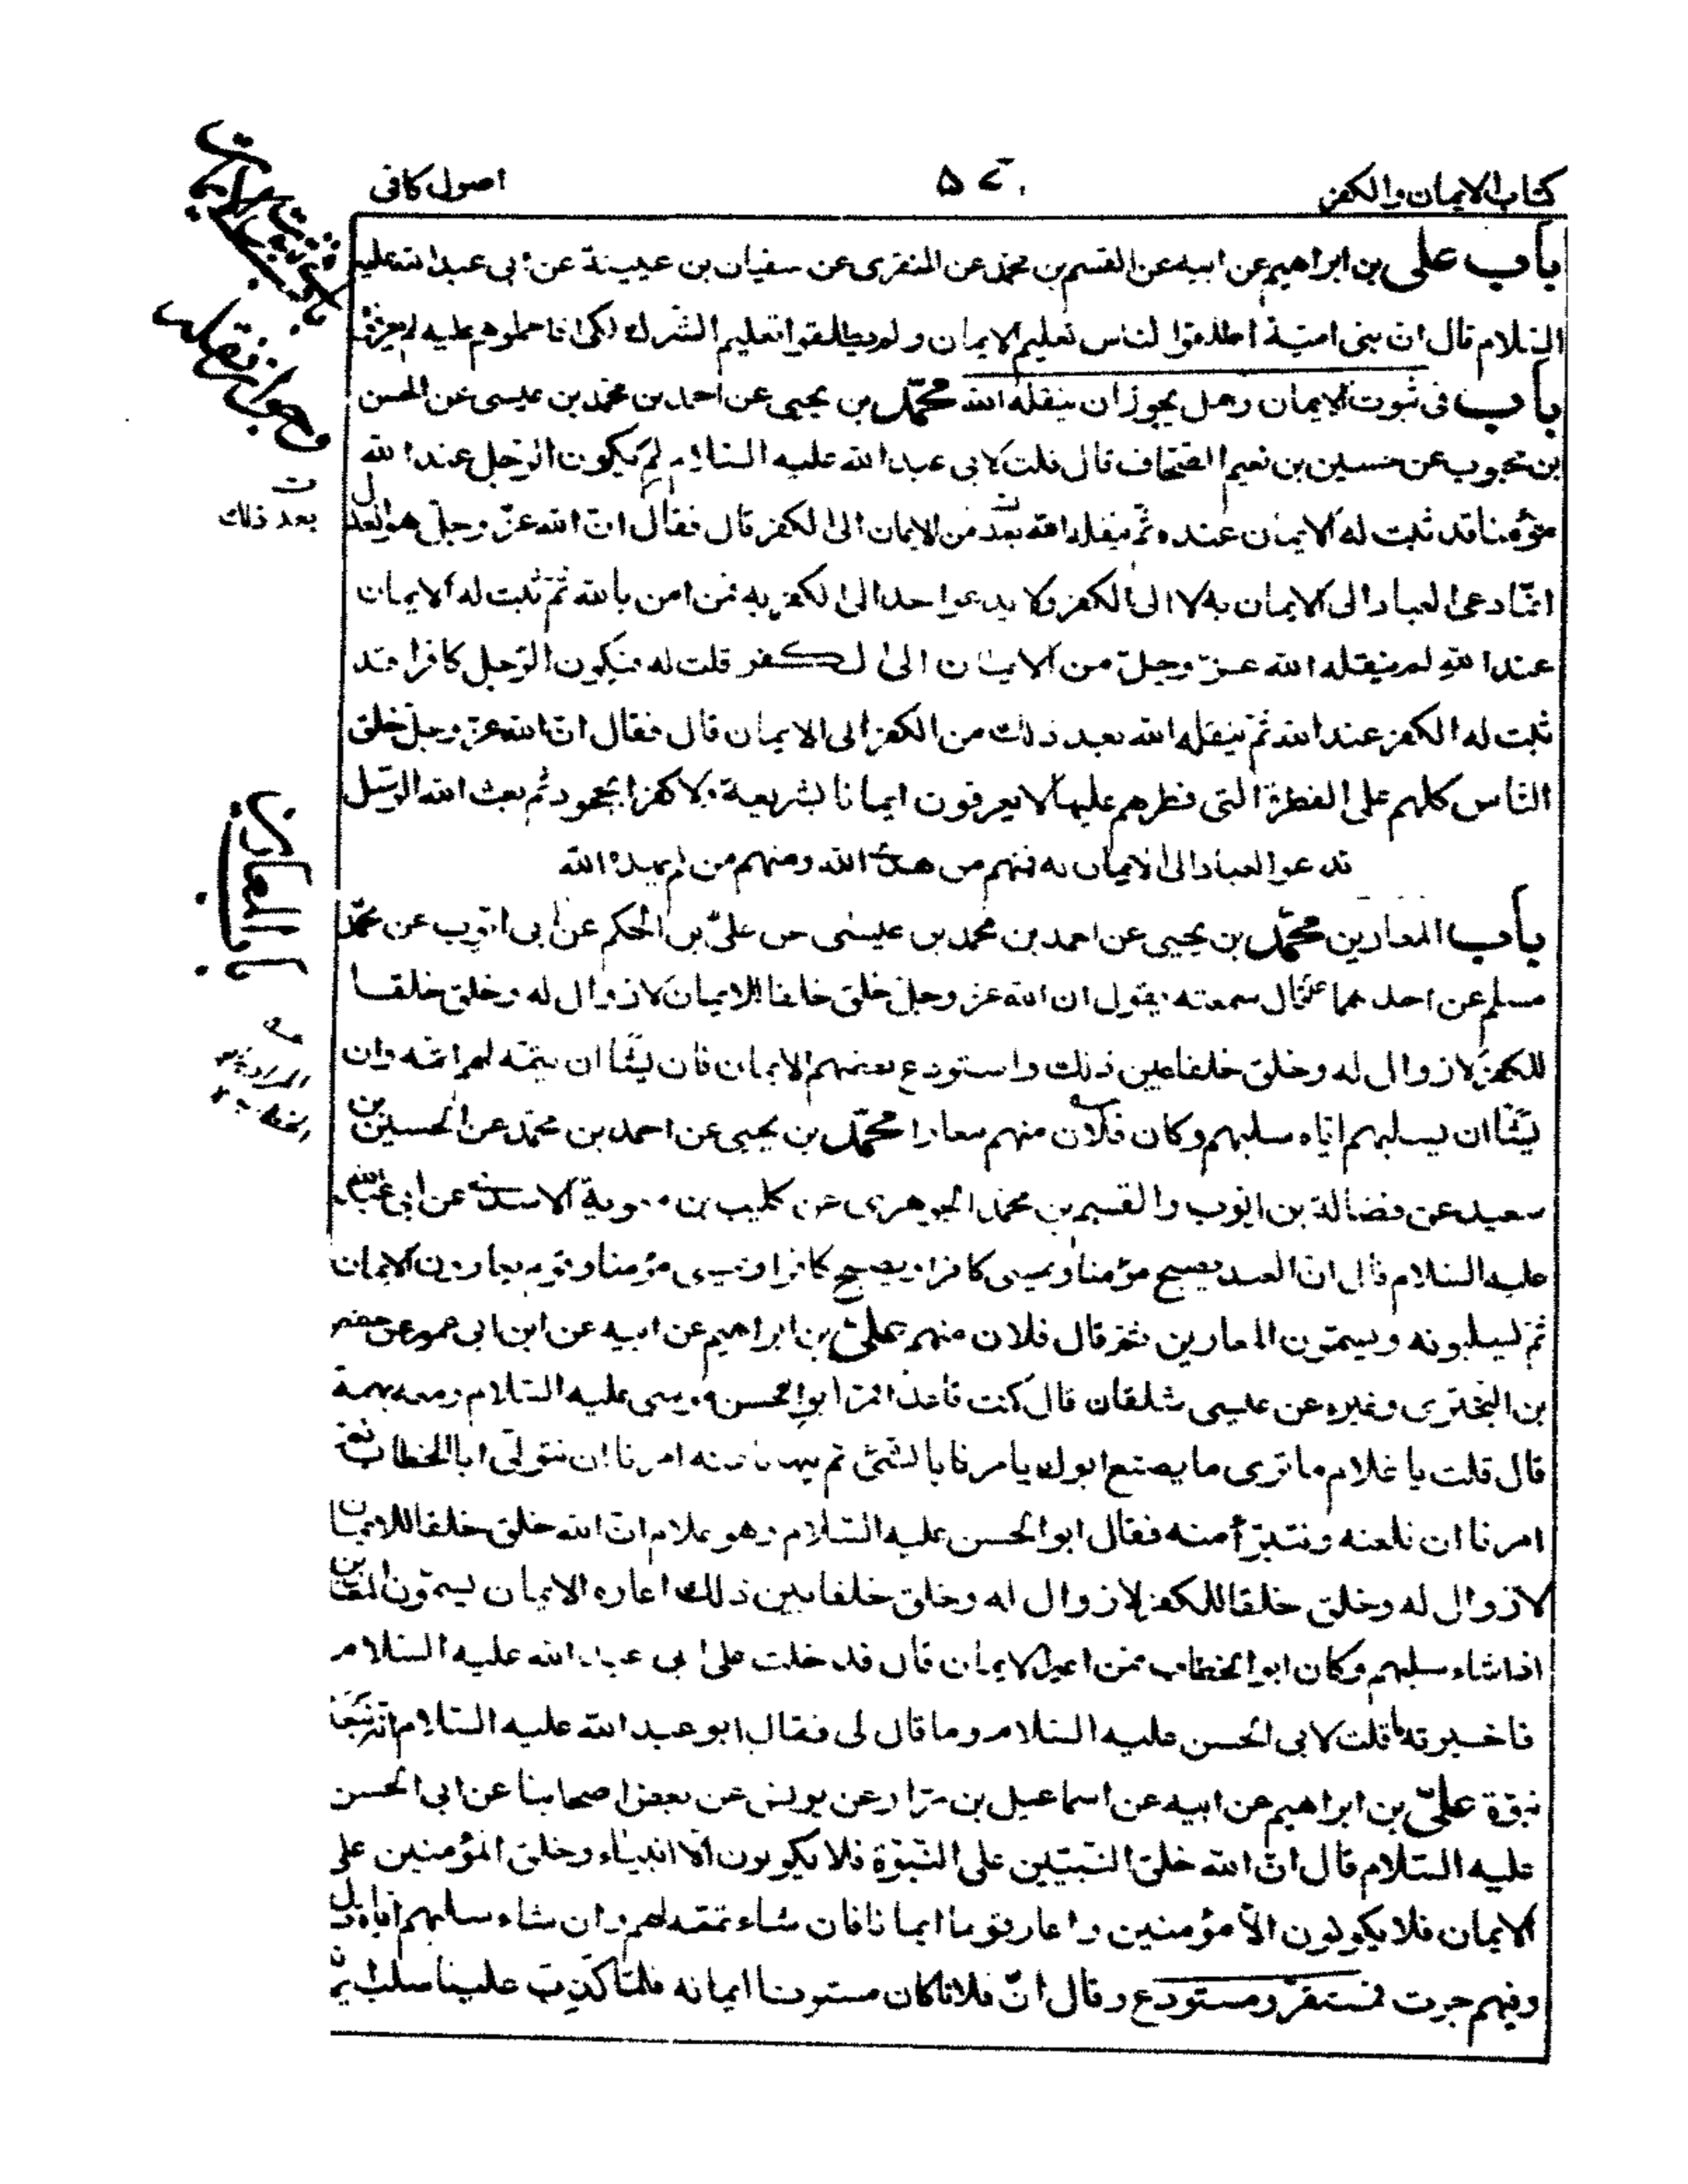 كتاب الايمان والكفر
اصول كافى
باب على بن ابراهيم عن ابيه عن القسم بن محمد عن المنقرى عن سفيان بن عيينة عن ابى عبد الله عليه
السلام قال ان بنى امية اطلقوا للناس تعليم الايمان ولم يطلقوا تعليم الشرك لكى اذا حملوهم عليه لم يعرفوه
باب فى ثبوت الايمان وهل يجوز ان ينقله الله محمد بن يحيى عن احمد بن محمد بن عيسى عن الحسن
بن محبوب عن حسين بن نعيم الصحاف قال قلت لابى عبد الله عليه السلام لم يكون الرجل عند الله
مؤمنا قد ثبت له الايمان عنده ثم ينقله الله بعد من الايمان الى الكفر قال فقال ان الله عز وجل هو العدل
بعد ذلك
انما دعى العباد الى الايمان به لا الى الكفر ولا يدعو احدا الى الكفر به فمن امن بالله ثم ثبت له الايمان
عند الله لم ينقله الله عز وجل من الايمان الى الكفر قلت له فيكون الرجل كافرا قد
ثبت له الكفر عند الله ثم ينقله الله بعد ذلك من الكفر الى الايمان قال فقال ان الله عز وجل خلق
الناس كلهم على الفطرة التى فطرهم عليها لا يعرفون ايمانا بشريعة ولا كفرا بجحود ثم بعث الله الرسل
تدعو العباد الى الايمان به فمنهم من هدى الله ومنهم من لم يهده الله
باب المعارين محمد بن يحيى عن احمد بن محمد بن عيسى عن على بن الحكم عن ابى ايوب عن محمد
باب المعارين
مسلم عن احدهما قال سمعته يقول ان الله عز وجل خلق خلقا للايمان لا زوال له وخلق خلقا
للكفر لا زوال له وخلق خلقا بين ذلك واستودع بعضهم الايمان فان يشأ ان يتمه لهم اتمه وان
يشأ ان يسلبهم اياه سلبهم وكان فلان منهم معارا محمد بن يحيى عن احمد بن محمد عن الحسين بن
سعيد عن فضالة بن ايوب والقسم بن محمد الجوهرى عن كليب بن معوية الاسدى عن ابى عبد الله
عليه السلام قال ان العبد يصبح مؤمنا ويمسى كافرا ويصبح كافرا ويمسى مؤمنا وقوم يعارون الايمان
ثم يسلبونه ويسمون المعارين ثم قال فلان منهم على بن ابراهيم عن ابيه عن ابن ابى عمير عن حفص
بن البخترى وغيره عن عيسى شلقان قال كنت قاعدا فمر ابو الحسن موسى عليه السلام ومعه بهمة
قال قلت يا غلام ما ترى ما يصنع ابوك يامرنا بالشئ ثم ينهانا عنه امرنا ان نتولى ابا الخطاب ثم
امرنا ان نلعنه ونتبرأ منه فقال ابو الحسن عليه السلام وهو غلام ان الله خلق خلقا للايمان
لا زوال له وخلق خلقا للكفر لا زوال له وخلق خلقا بين ذلك اعاره الايمان يسمون المعارين
اذا شاء سلبهم وكان ابو الخطاب ممن اعير الايمان قال فدخلت على ابى عبد الله عليه السلام
فاخبرته ما قلت لابى الحسن عليه السلام وما قال لى فقال ابو عبد الله عليه السلام انه نبعة
نبوة على بن ابراهيم عن ابيه عن اسماعيل بن مرار عن يونس عن بعض اصحابنا عن ابى الحسن
عليه السلام قال ان الله خلق النبيين على النبوة فلا يكونون الا انبياء وخلق المؤمنين على
الايمان فلا يكونون الا مؤمنين واعار قوما ايمانا فان شاء تممه لهم وان شاء سلبهم اياه قال
وفيهم جرت فمستقر ومستودع وقال ان فلانا كان مستودعا ايمانه فلما كذب علينا سلب ايمانه